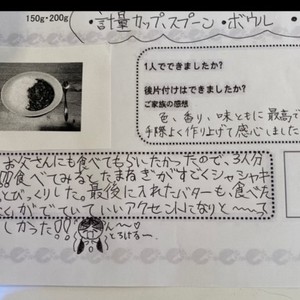 150g・200g
・計量カップ、スプーン ・ボウル
1人でできましたか?
後片付けはできましたか?
ご家族の感想
色、香り、味ともに最高で
手際よく作り上げて感心しました
お父さんにも食べてもらいたかったので、3人分
!!食べてみるとたまねぎがすごくシャシャキ
とびっくりした。最後に入れたバターも、食べた
くがでていていいアクセントになりと〜〜っ
しかった!!
ん〜♡
とろける〜